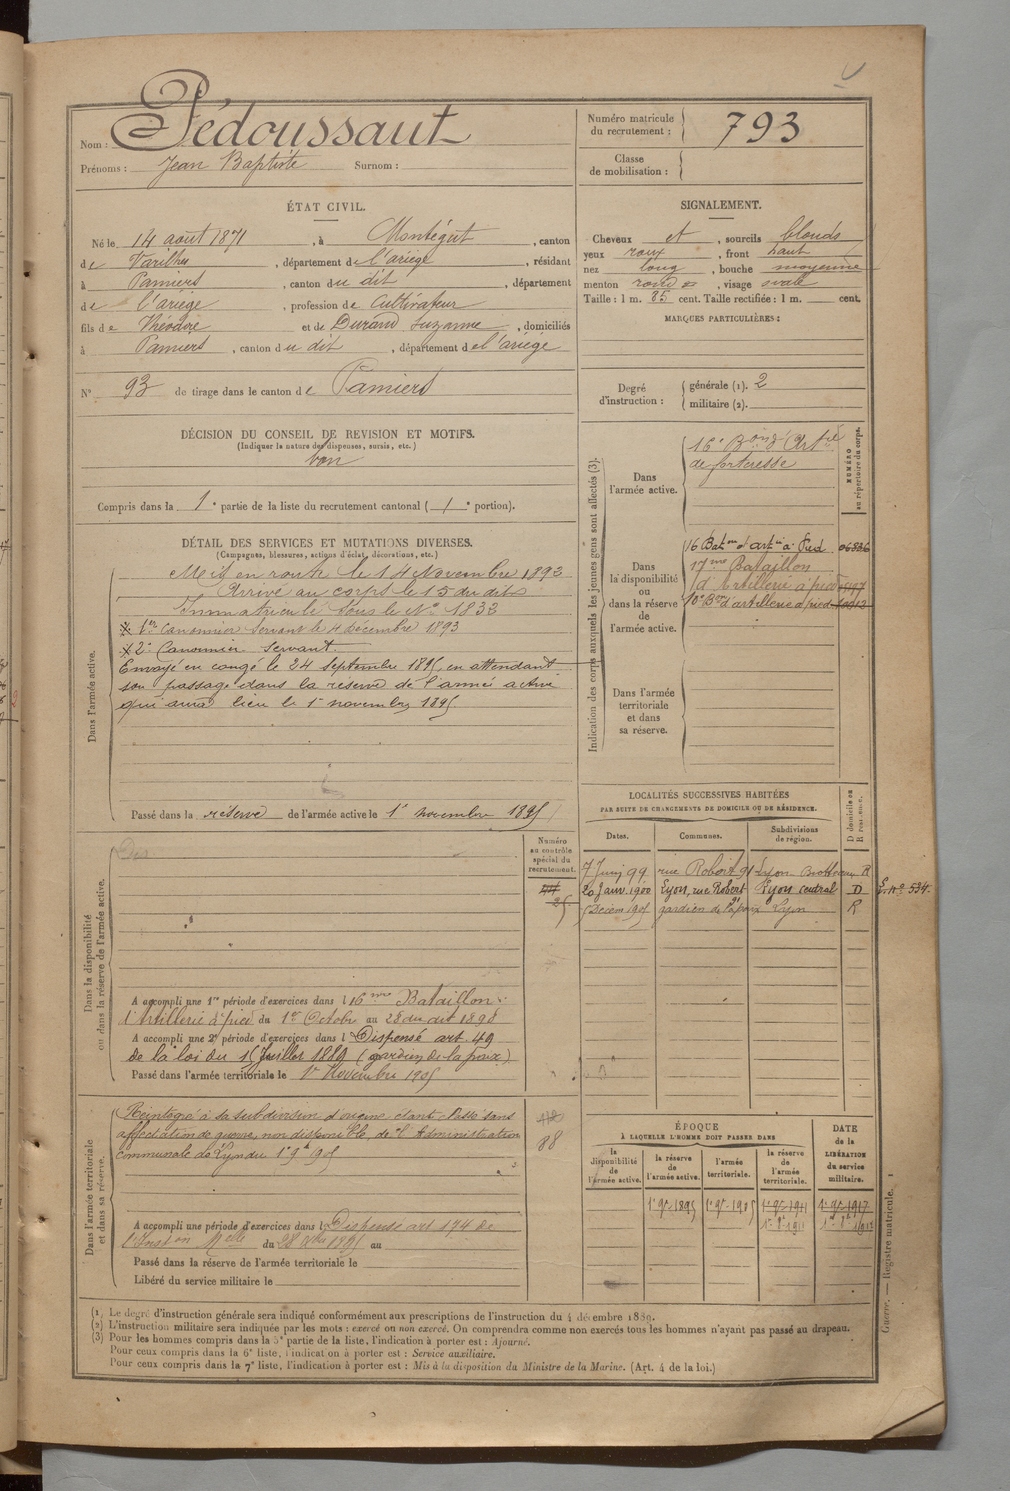 Nom : Pédoussaut
Prénoms : Jean Baptiste Surnom :
Numéro matricule du recrutement : 793
Classe de mobilisation :
ÉTAT CIVIL.
Né le 14 août 1871, à Montégut, canton
de Varilhes, département de l'ariège, résidant
à Pamiers, canton du dit, département
de l'ariège, profession de Cultivateur
fils de Théodore et de Durand Suzanne, domiciliés
à Pamiers, canton du dit, département de l'ariège
N° 93 de tirage dans le canton de Pamiers
SIGNALEMENT.
Cheveux et, sourcils blonds
yeux roux, front haut
nez long, bouche moyenne
menton rond, visage ovale
Taille : 1 m. 85 cent. Taille rectifiée : 1 m. cent.
MARQUES PARTICULIÈRES :
Degré d'instruction : générale (1). 2
militaire (2).
DÉCISION DU CONSEIL DE REVISION ET MOTIFS.
(Indiquer la nature des dispenses, sursis, etc.)
bon
Compris dans la 1e partie de la liste du recrutement cantonal (1e portion).
DÉTAIL DES SERVICES ET MUTATIONS DIVERSES.
(Campagnes, blessures, actions d'éclat, décorations, etc.)
Dans l'armée active.
Mis en route le 14 Novembre 1892
Arrivé au corps le 15 du dit
Immatriculé sous le N° 1832
1er Canonnier Servant le 4 décembre 1893
2e Canonnier servant.
Envoyé en congé le 24 septembre 1895 en attendant
son passage dans la réserve de l'armée active
qui aura lieu le 1er novembre 1895
Passé dans la réserve de l'armée active le 1er novembre 1895
Indication des corps auxquels les jeunes gens sont affectés (3).
NUMÉRO au répertoire du corps.
Dans l'armée active.
16e Bon d'Artrie
de forteresse
Dans la disponibilité ou dans la réserve de l'armée active.
16 Baton d'artrie à Pied
17me Bataillon
d'Artillerie à pied
10e Bon d'artillerie à pied
Dans l'armée territoriale et dans sa réserve.
LOCALITÉS SUCCESSIVES HABITÉES
PAR SUITE DE CHANGEMENTS DE DOMICILE OU DE RÉSIDENCE.
Dates. Communes. Subdivisions de région. D domicile ou R résidence.
7 Juin 99 rue Robert 91 Lyon Brotteaux R
20 Janv. 1900 Lyon, rue Robert 91 Lyon central D
5 Décem 1905 gardien de la paix Lyon R
Numéro au contrôle spécial du recrutement.
25
Dans la disponibilité ou dans la réserve de l'armée active.
A accompli une 1re période d'exercices dans l 16me Bataillon
d'Artillerie à pied du 1er Octobre au 28 du dit 1898
A accompli une 2e période d'exercices dans l Dispensé art. 49
de la loi du 15 Juillet 1889 (gardien de la paix)
Passé dans l'armée territoriale le 1er Novembre 1905
Dans l'armée territoriale et dans sa réserve.
Réintégré à sa subdivision d'origine étant Passé sans
affectation de guerre, non disponible, de l'Administration
communale de Lyon du 1er 9bre 1905
88
A accompli une période d'exercices dans l Dispensé art 174 de
l'Inston Melle du 28 Xbre 1895 au
Passé dans la réserve de l'armée territoriale le
Libéré du service militaire le
ÉPOQUE
À LAQUELLE L'HOMME DOIT PASSER DANS
la disponibilité de l'armée active. la réserve de l'armée active. l'armée territoriale. la réserve de l'armée territoriale.
DATE de la LIBÉRATION du service militaire.
1er 9bre 1895 1er 9bre 1905 1er 9bre 1911 1er 9bre 1917
Guerre. — Registre matricule. 1
(1) Le degré d'instruction générale sera indiqué conformément aux prescriptions de l'instruction du 4 décembre 1889.
(2) L'instruction militaire sera indiquée par les mots : exercé ou non exercé. On comprendra comme non exercés tous les hommes n'ayant pas passé au drapeau.
(3) Pour les hommes compris dans la 5e partie de la liste, l'indication à porter est : Ajourné.
Pour ceux compris dans la 6e liste, l'indication à porter est : Service auxiliaire.
Pour ceux compris dans la 7e liste, l'indication à porter est : Mis à la disposition du Ministre de la Marine. (Art. 4 de la loi.)